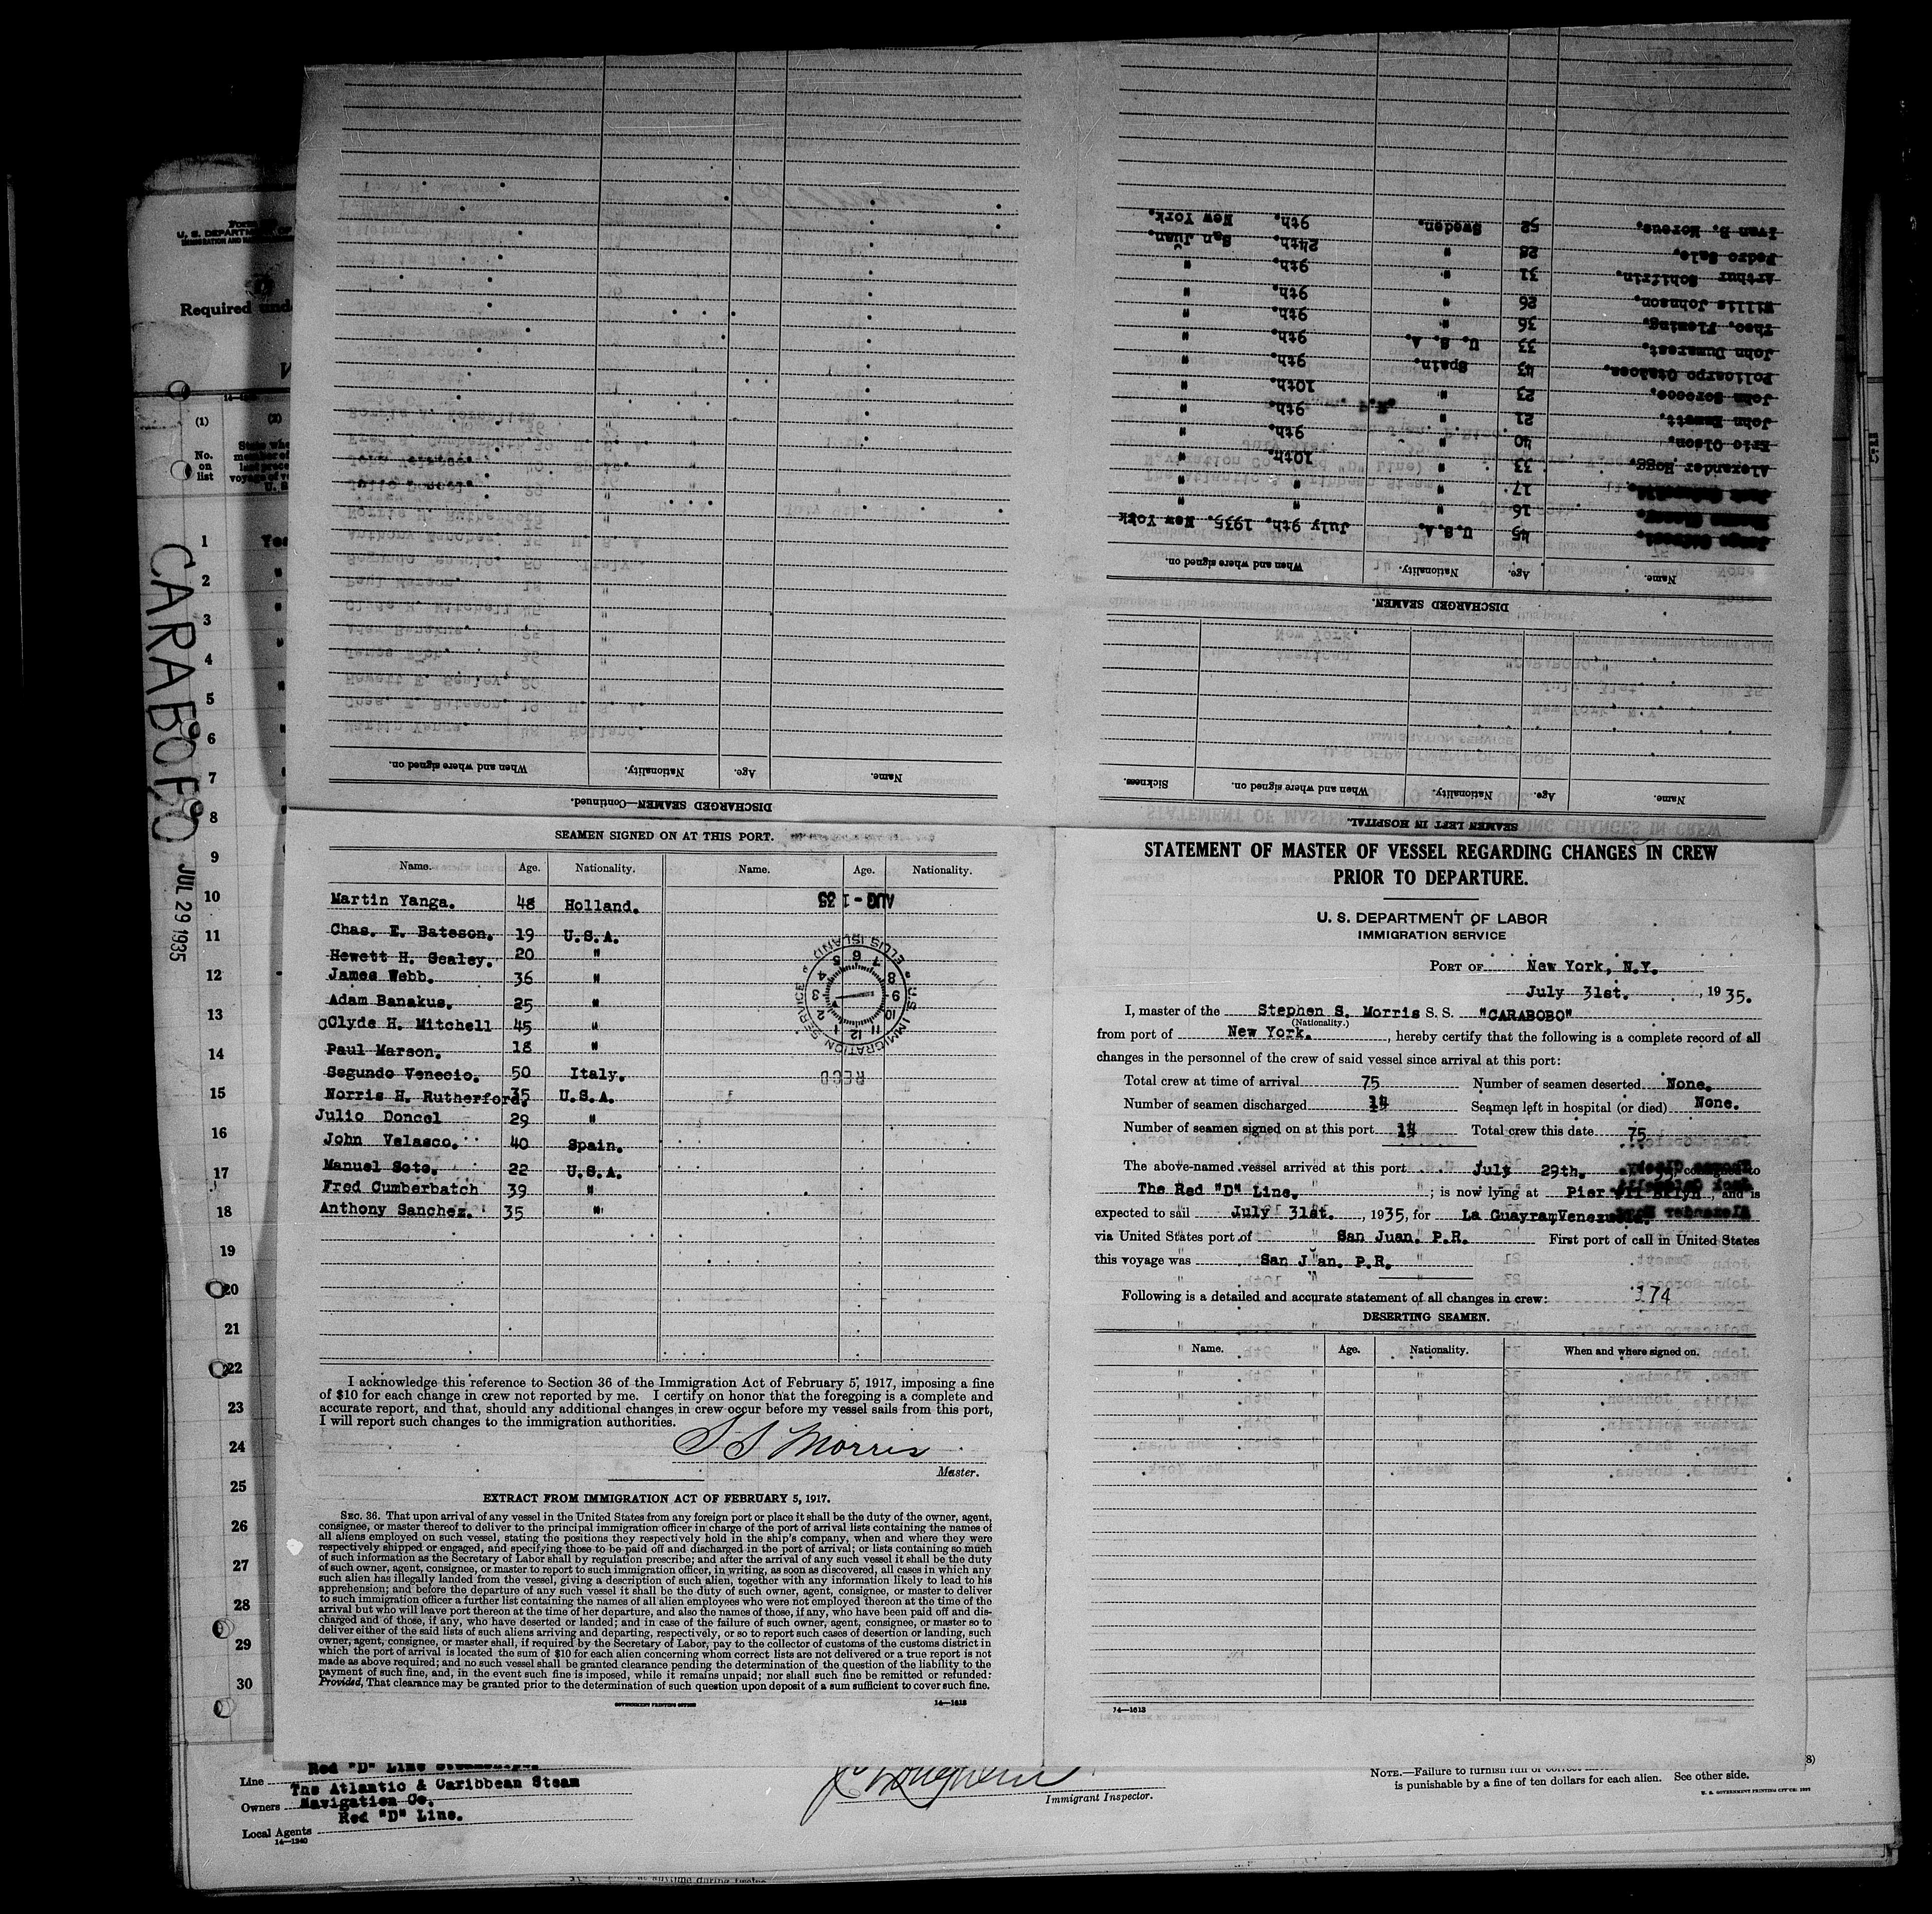 FORM
U. S. DEPARTMENT OF
IMMIGRATION AND
Required under
(1) (2)
No. on list
CARABOBO
JUL 29 1935
1 Yes
2 "
3 "
4 "
5 "
6 "
7 "
8 "
9
10
11
12
13
14
15
16
17
18
19
20
21
22
23
24
25
26
27
28
29
30
Ivan B. Moreus. 52 Sweden. 9th. New York.
Pedro Sale. 28 " 24th. San Juan.
Arthur Schifrin. 31 " 9th. "
Willis Johnson. 26 " 9th. "
Theo. Fleming. 36 " 9th. "
John Dumarest. 33 U. S. A. 9th. "
Policarpo Otaloea. 43 Spain. 9th. "
John Sorocco. 23 " 10th. "
John Emmett. 21 " 9th. "
Eric Olson. 40 " 9th. "
Alexander Hogg. 33 " 10th. "
17 " " "
16 " " "
45 U.S.A. July 9th. 1935. New York
Name. Age. Nationality. When and where signed on.
DISCHARGED SEAMEN.
Name. Age. Nationality. When and where signed on. Sickness.
SEAMEN LEFT IN HOSPITAL.
Name. Age. Nationality. When and where signed on.
DISCHARGED SEAMEN—Continued.
SEAMEN SIGNED ON AT THIS PORT.
Name. Age. Nationality. Name. Age. Nationality.
Martin Yanga. 48 Holland.
Chas. E. Bateson. 19 U.S.A.
Hewett H. Sealey. 20 "
James Webb. 36 "
Adam Banakus. 25 "
Clyde H. Mitchell 45 "
Paul Marson. 18 "
Segundo Venecio. 50 Italy.
Norris H. Rutherford. 35 U.S.A.
Julio Doncel 29 "
John Velasco. 40 Spain.
Manuel Soto. 22 U.S.A.
Fred Cumberbatch 39 "
Anthony Sanchez. 35 "
AUG - 1 35
U.S. IMMIGRATION SERVICE ELLIS ISLAND
12 1 2 3 4 5 6 7 8 9 10 11
RECD
I acknowledge this reference to Section 36 of the Immigration Act of February 5, 1917, imposing a fine
of $10 for each change in crew not reported by me. I certify on honor that the foregoing is a complete and
accurate report, and that, should any additional changes in crew occur before my vessel sails from this port,
I will report such changes to the immigration authorities.
S S Morris
Master.
EXTRACT FROM IMMIGRATION ACT OF FEBRUARY 5, 1917.
SEC. 36. That upon arrival of any vessel in the United States from any foreign port or place it shall be the duty of the owner, agent,
consignee, or master thereof to deliver to the principal immigration officer in charge of the port of arrival lists containing the names of
all aliens employed on such vessel, stating the positions they respectively hold in the ship's company, when and where they were
respectively shipped or engaged, and specifying those to be paid off and discharged in the port of arrival; or lists containing so much
of such information as the Secretary of Labor shall by regulation prescribe; and after the arrival of any such vessel it shall be the duty
of such owner, agent, consignee, or master to report to such immigration officer, in writing, as soon as discovered, all cases in which any
such alien has illegally landed from the vessel, giving a description of such alien, together with any information likely to lead to his
apprehension; and before the departure of any such vessel it shall be the duty of such owner, agent, consignee, or master to deliver
to such immigration officer a further list containing the names of all alien employees who were not employed thereon at the time of the
arrival but who will leave port thereon at the time of her departure, and also the names of those, if any, who have been paid off and dis-
charged and of those, if any, who have deserted or landed; and in case of the failure of such owner, agent, consignee, or master so to
deliver either of the said lists of such aliens arriving and departing, respectively, or so to report such cases of desertion or landing, such
owner, agent, consignee, or master shall, if required by the Secretary of Labor, pay to the collector of customs of the customs district in
which the port of arrival is located the sum of $10 for each alien concerning whom correct lists are not delivered or a true report is not
made as above required; and no such vessel shall be granted clearance pending the determination of the question of the liability to the
payment of such fine, and, in the event such fine is imposed, while it remains unpaid; nor shall such fine be remitted or refunded:
Provided, That clearance may be granted prior to the determination of such question upon deposit of a sum sufficient to cover such fine.
GOVERNMENT PRINTING OFFICE 14—1613
STATEMENT OF MASTER OF VESSEL REGARDING CHANGES IN CREW
PRIOR TO DEPARTURE.
U. S. DEPARTMENT OF LABOR
IMMIGRATION SERVICE
PORT OF New York, N.Y.
July 31st. , 1935.
I, master of the Stephen S. Morris S. S. "CARABOBO"
(Nationality.)
from port of New York. , hereby certify that the following is a complete record of all
changes in the personnel of the crew of said vessel since arrival at this port:
Total crew at time of arrival 75 Number of seamen deserted None.
Number of seamen discharged 14 Seamen left in hospital (or died) None.
Number of seamen signed on at this port 14 Total crew this date 75
The above-named vessel arrived at this port July 29th. to
The Red "D" Line. ; is now lying at Pier , and is
expected to sail July 31st. , 1935, for La Guayra, Venezuela.
via United States port of San Juan. P.R. First port of call in United States
this voyage was San Juan. P.R.
Following is a detailed and accurate statement of all changes in crew: 174
DESERTING SEAMEN.
Name. Age. Nationality. When and where signed on.
14—1613
Line Red "D" Line
Owners The Atlantic & Caribbean Steam
Navigation Co.
Local Agents Red "D" Line.
14—1240
Immigrant Inspector.
NOTE.—Failure to furnish
is punishable by a fine of ten dollars for each alien. See other side.